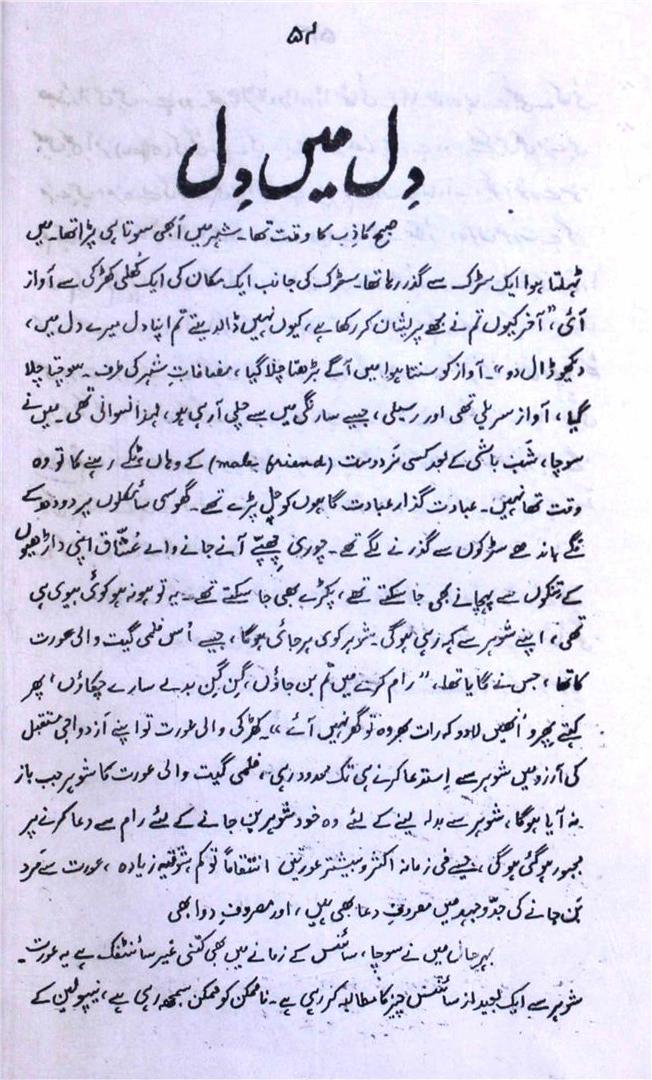 ۵۴
دِل میں دِل
صبح کاذِب کا وقت تھا۔ شہر میں اَبھی سوتا ہی پڑا تھا۔ میں
ٹہلتا ہوا ایک سڑک سے گذر رہا تھا۔ سڑک کی جانب ایک مکان کی ایک کُھلی کھڑکی سے آواز
آئی، "آخر کیوں تم نے مجھے پریشان کر رکھا ہے، کیوں نہیں ڈالدیتے تم اپنا دل میرے دل میں،
دیکھو ڈال دو"۔ آواز کو سنتا ہوا میں آگے بڑھتا چلا گیا، مضافاتِ شہر کی طرف۔ سوچتا چلا
گیا، آواز سریلی تھی اور رسیلی، جیسے سارنگی میں سے چلی آ رہی ہو، لہٰذا نسوانی تھی۔ میں نے
سوچا، شَب باشی کے بعد کسی مَرد دوست (male friend) کے وہاں ٹِکے رہنے کا تو وہ
وقت تھا نہیں۔ عبادت گذار عبادت گاہوں کو چل پڑے تھے۔ گھوسی سائکلوں پر دودھ کے
ٹنکے باندھے سڑکوں سے گذرنے لگے تھے۔ چوری چُھپّے آنے جانے والے عُشّاق اپنی داڑھیوں
کے تنکوں سے پہچانے بھی جا سکتے تھے، پکڑے بھی جا سکتے تھے۔ یہ تو ہو نہ ہو کوئی بیوی ہی
تھی، اپنے شوہر سے کہہ رہی ہوگی۔ شوہر کوی ہرجائی ہوگا، جیسے اُس فلمی گیت والی عورت
کا تھا، جس نے گایا تھا، "رام کرے میں تُم بن جاؤں، گِن گِن بدلے سارے چکاؤں، پھر
کہتے پھرو اُنھیں لادو کہ رات بھر وہ تو گھر نہیں آئے"۔ کھڑکی والی عورت تو اپنے اَزدواجی مستقبل
کی آرزو میں شوہر سے اِستدعا کرنے ہی تک محدود رہی، فلمی گیت والی عورت کا شوہر جب باز
نہ آیا ہوگا، شوہر سے بدلہ لینے کے لئے وہ خود شوہر بن جانے کے لئے رام سے دعا کرنے پر
مجبور ہو گئی ہوگی، جیسے فی زمانہ اکثر و بیشتر عورتیں انتقاماً تو کم، شوقیہ زیادہ، عورت سے مَرد
بَن جانے کی جدّ و جہد میں مصروفِ دعا بھی ہیں، اور مصروفِ دوا بھی
بہرحال میں نے سوچا، سائنس کے زمانے میں بھی کتنی غیر سائنٹفک ہے یہ عورت۔
شوہر سے ایک بعید از سائنس چیز کا مطالبہ کر رہی ہے۔ نا ممکن کو ممکن سمجھ رہی ہے، نیپولین کے